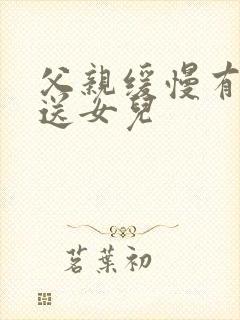 父親緩慢有
送女兒
茗葉初